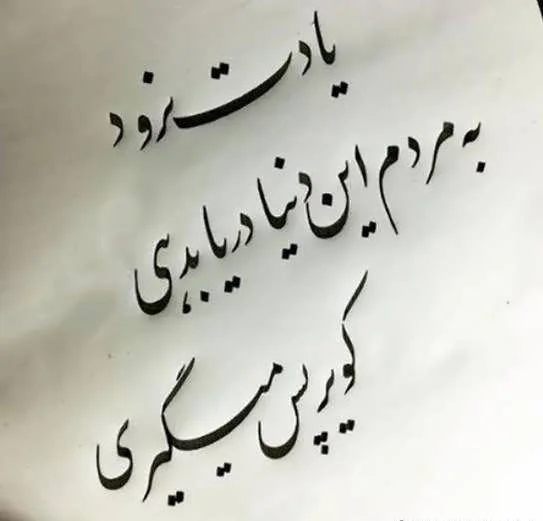 یادت نرود
به مردم این دنیا دریا بدهی
کویر پس میگیری